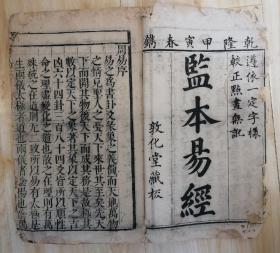 乾隆甲寅春鐫
遵依一定字樣
較正點畫無訛
監本易經
敦化堂藏板
周易序
易之為書卦爻彖象之義備而天地萬物
之情見聖人之憂天下來世其至矣先天
下而開其物後天下而成其務是故極其
數以定天下之象著其象以定天下之吉
凶六十四卦三百八十四爻皆所以順性
命之理盡變化之道也散之在理則有萬
殊統之在道則无二致所以易有太極是
生兩儀太極者道也兩儀者陰陽也陰陽